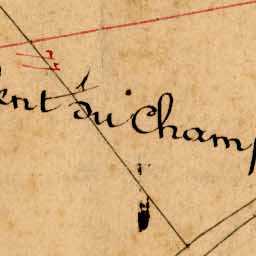 ent du Champ